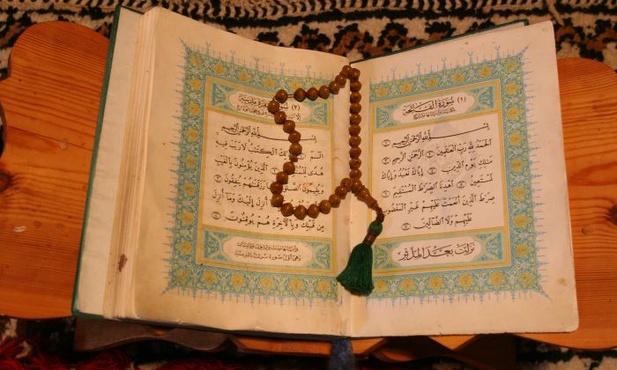 (١) سُورَةُ الفَاتِحَةِ
بِسْمِ اللَّهِ الرَّحْمَنِ الرَّحِيمِ
الْحَمْدُ لِلَّهِ رَبِّ الْعَالَمِينَ الرَّحْمَنِ الرَّحِيمِ
مَلِكِ يَوْمِ الدِّينِ إِيَّاكَ نَعْبُدُ وَإِيَّاكَ
نَسْتَعِينُ اهْدِنَا الصِّرَاطَ الْمُسْتَقِيمَ
صِرَاطَ الَّذِينَ أَنْعَمْتَ عَلَيْهِمْ غَيْرِ الْمَغْضُوبِ
عَلَيْهِمْ وَلَا الضَّالِّينَ
نَزَلَتْ بَعْدَ الْمُدَّثِّر
(٢) سُورَةُ البَقَرَةِ مَدَنِيَّة
بِسْمِ اللَّهِ الرَّحْمَنِ الرَّحِيمِ
الم الْكِتَابُ لَا رَيْبَ فِيهِ
هُدًى لِلْمُتَّقِينَ الَّذِينَ يُؤْمِنُونَ بِالْغَيْبِ
وَيُقِيمُونَ رَزَقْنَاهُمْ يُنْفِقُونَ
أُنْزِلَ إِلَيْكَ وَمَا أُنْزِلَ
مِنْ قَبْلِكَ وَبِالْآخِرَةِ هُمْ يُوقِنُونَ